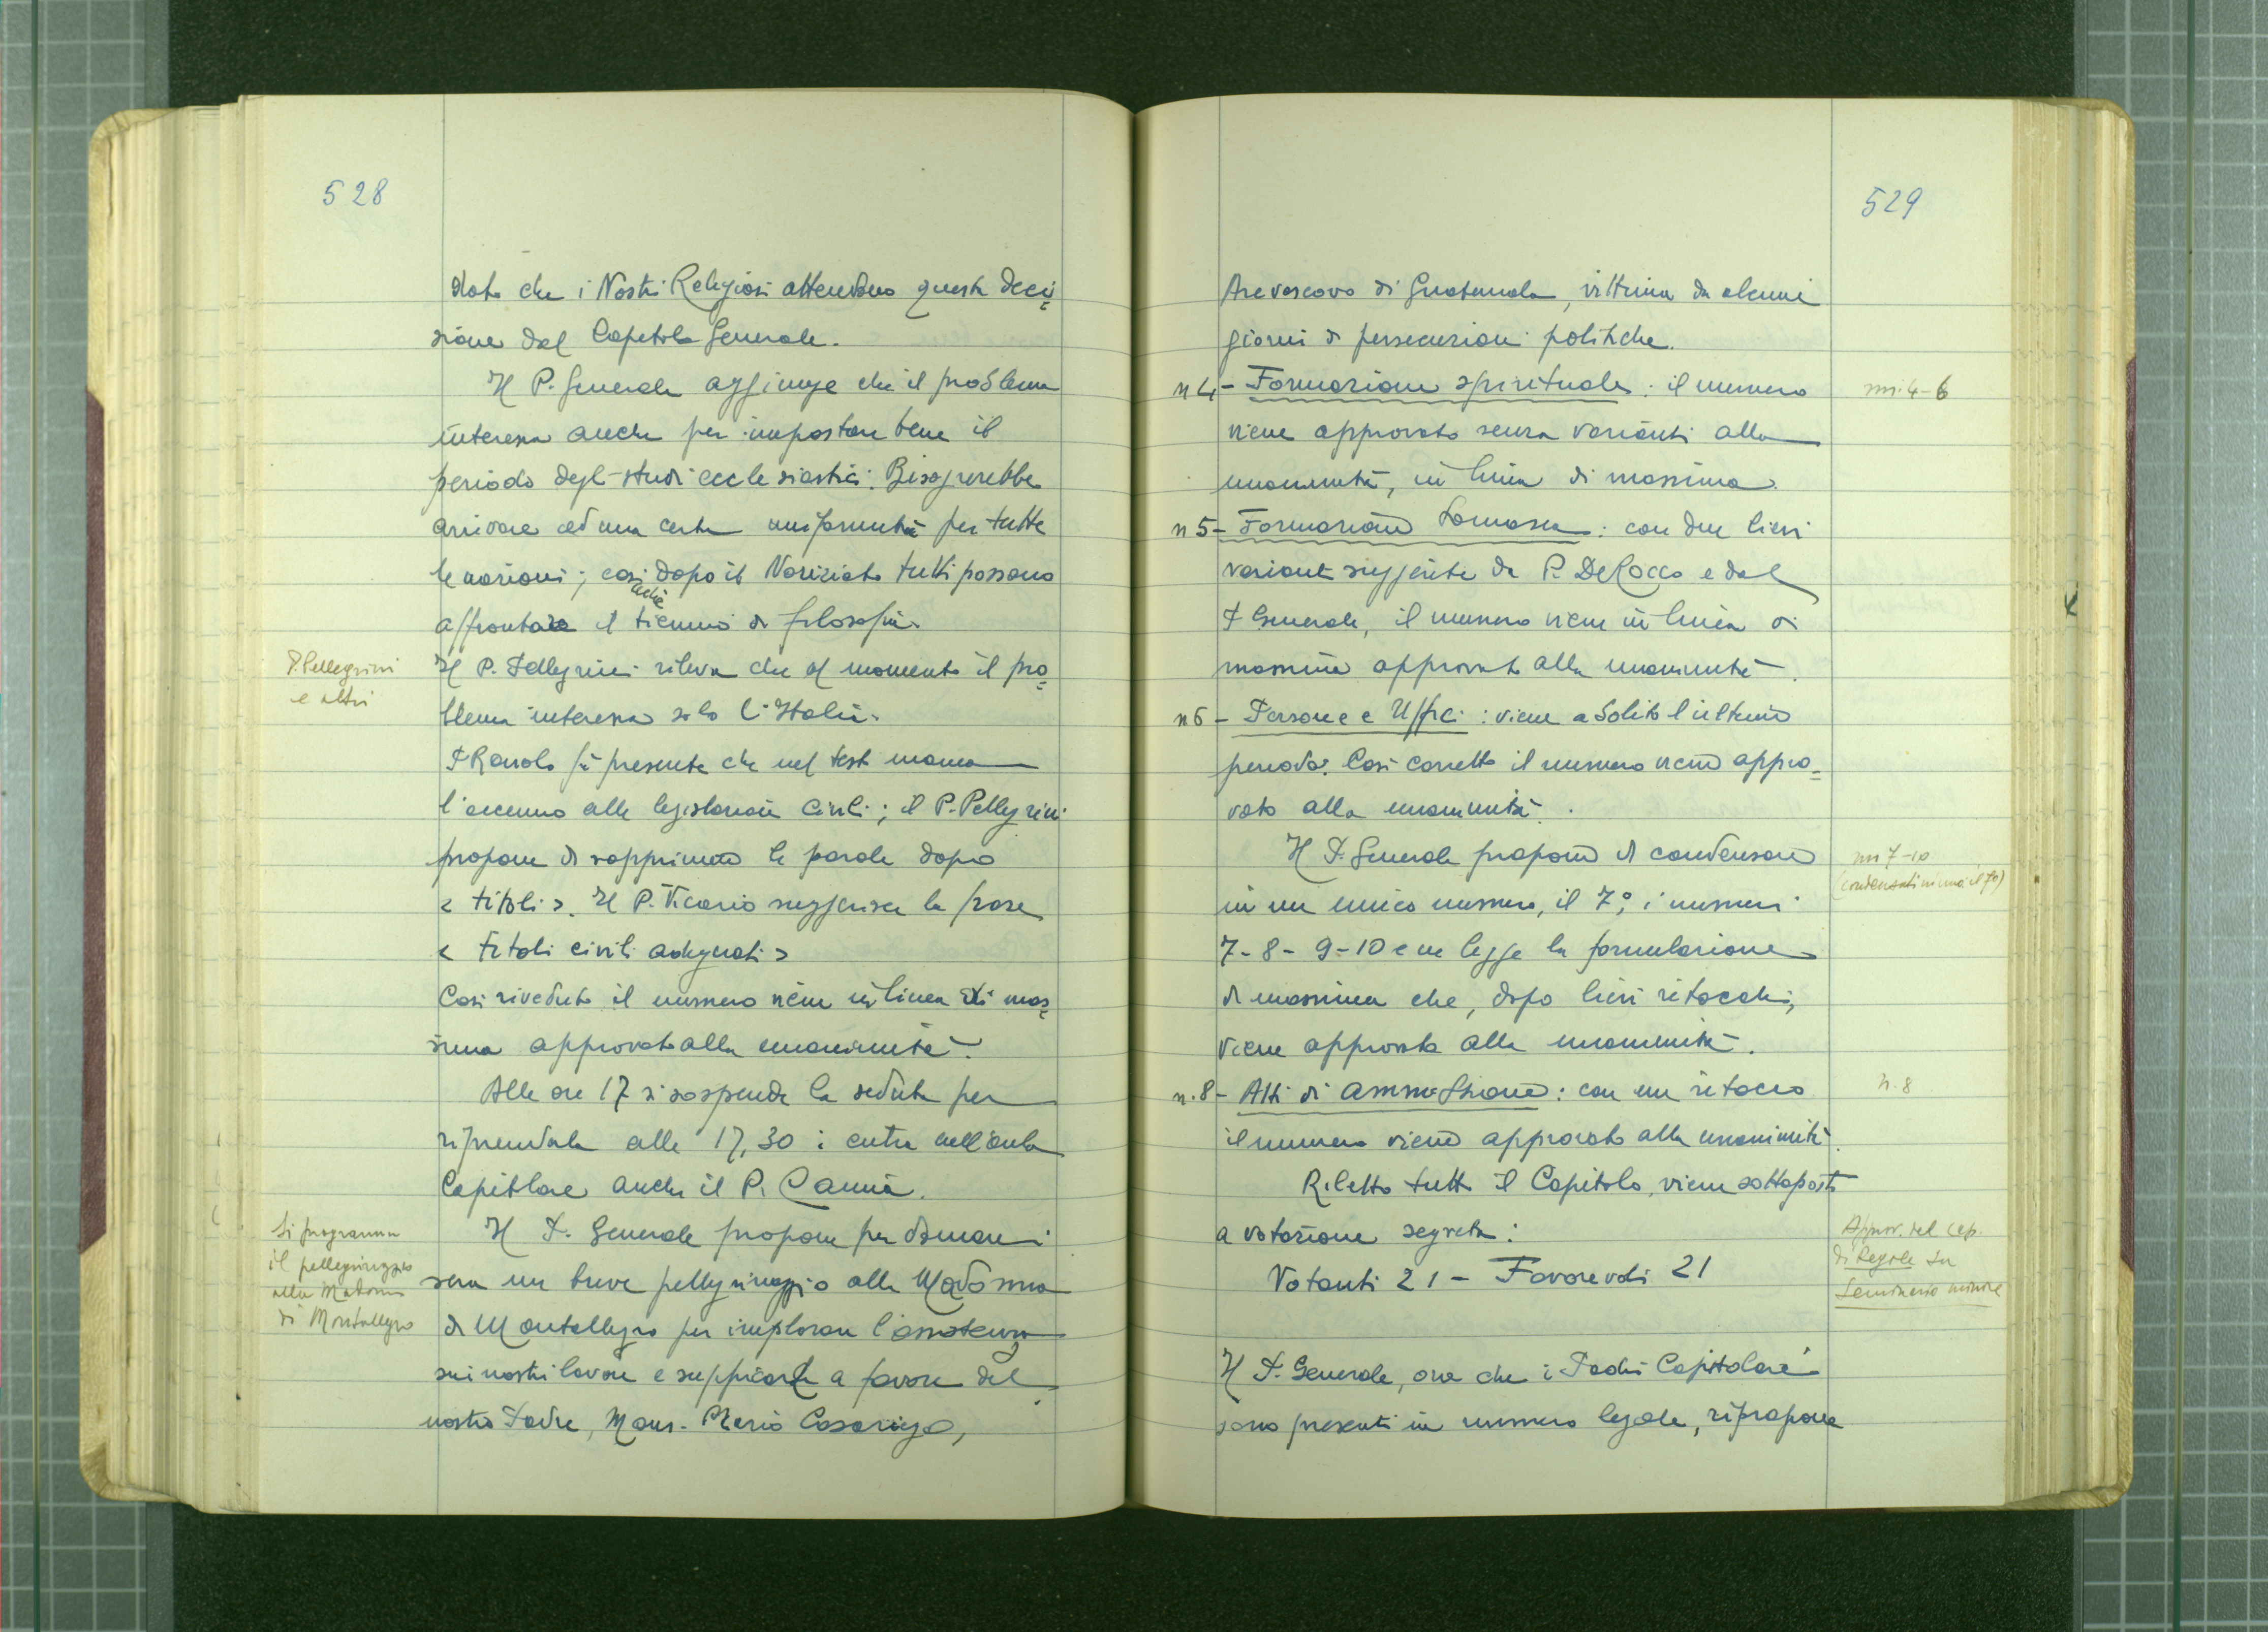 528
dato che i Nostri Religiosi attendono questa deci=
sione dal Capitolo Generale.
Il P. Generale aggiunge che il problema
interessa anche per impostare bene il
periodo degli studi ecclesiastici. Bisognerebbe
arrivare ad una certa uniformità per tutte
le nazioni; così dopo il Noviziato tutti possono
anche
affrontare il tiennio di filosofia.
P. Pellegrini
e altri
Il P. Pellegrini rileva che al momento il pro=
blema interessa solo l'Italia.
P. fa presente che nel testo manca
l'accenno alle legislazioni civili; il P. Pellegrini
propone di sopprimere le parole dopo
< titoli >. Il P. Vicario suggerisce la frase
< titoli civili adeguati >
Così riveduto il numero viene in linea di mas=
sima approvato alla unanimità.
Alle ore 17 si sospende la seduta per
riprenderla alle 17,30: entra nell'aula
Capitolare anche il P. Cannia.
Si programma
il pellegrinaggio
alla Madonna
di Montallegro
Il P. Generale propone per domani
sera un breve pellegrinaggio alla Madonna
di Montallegro per implorare l'assistenza
sui nostri lavori e supplicarla a favore del
nostro Padre, Mons. Mario Casariego,
529
Arcivescovo di Guatemala, vittima da alcuni
giorni di persecuzioni politiche.
n 4 - Formazione spirituale: il numero
nn. 4-6
viene approvato senza varianti alla
unanimità, in linea di massima.
n 5 - Formazione Somasca: con due lievi
varianti suggerite da P. De Rocco e dal
P. Generale, il numero viene in linea di
massima approvato alla unanimità.
n 6 - Persone e Uffici: viene abolito l'ultimo
periodo. Così corretto il numero viene appro=
vato alla unanimità.
Il P. Generale propone di condensare
nn 7-10
(condensati in uno: il 7º)
in un unico numero, il 7º, i numeri
7-8-9-10 e ne legge la formulazione
di massima che, dopo lievi ritocchi,
viene approvata alla unanimità.
n. 8 - Atti di amm.ssione: con un ritocco
n. 8
il numero viene approvato alla unanimità.
Riletto tutto il Capitolo, viene sottoposto
a votazione segreta:
Approv. del cap.
di Regole su
Seminario minore
Votanti 21 - Favorevoli 21
Il P. Generale, ora che i Padri Capitolari
sono presenti in numero legale, ripropone